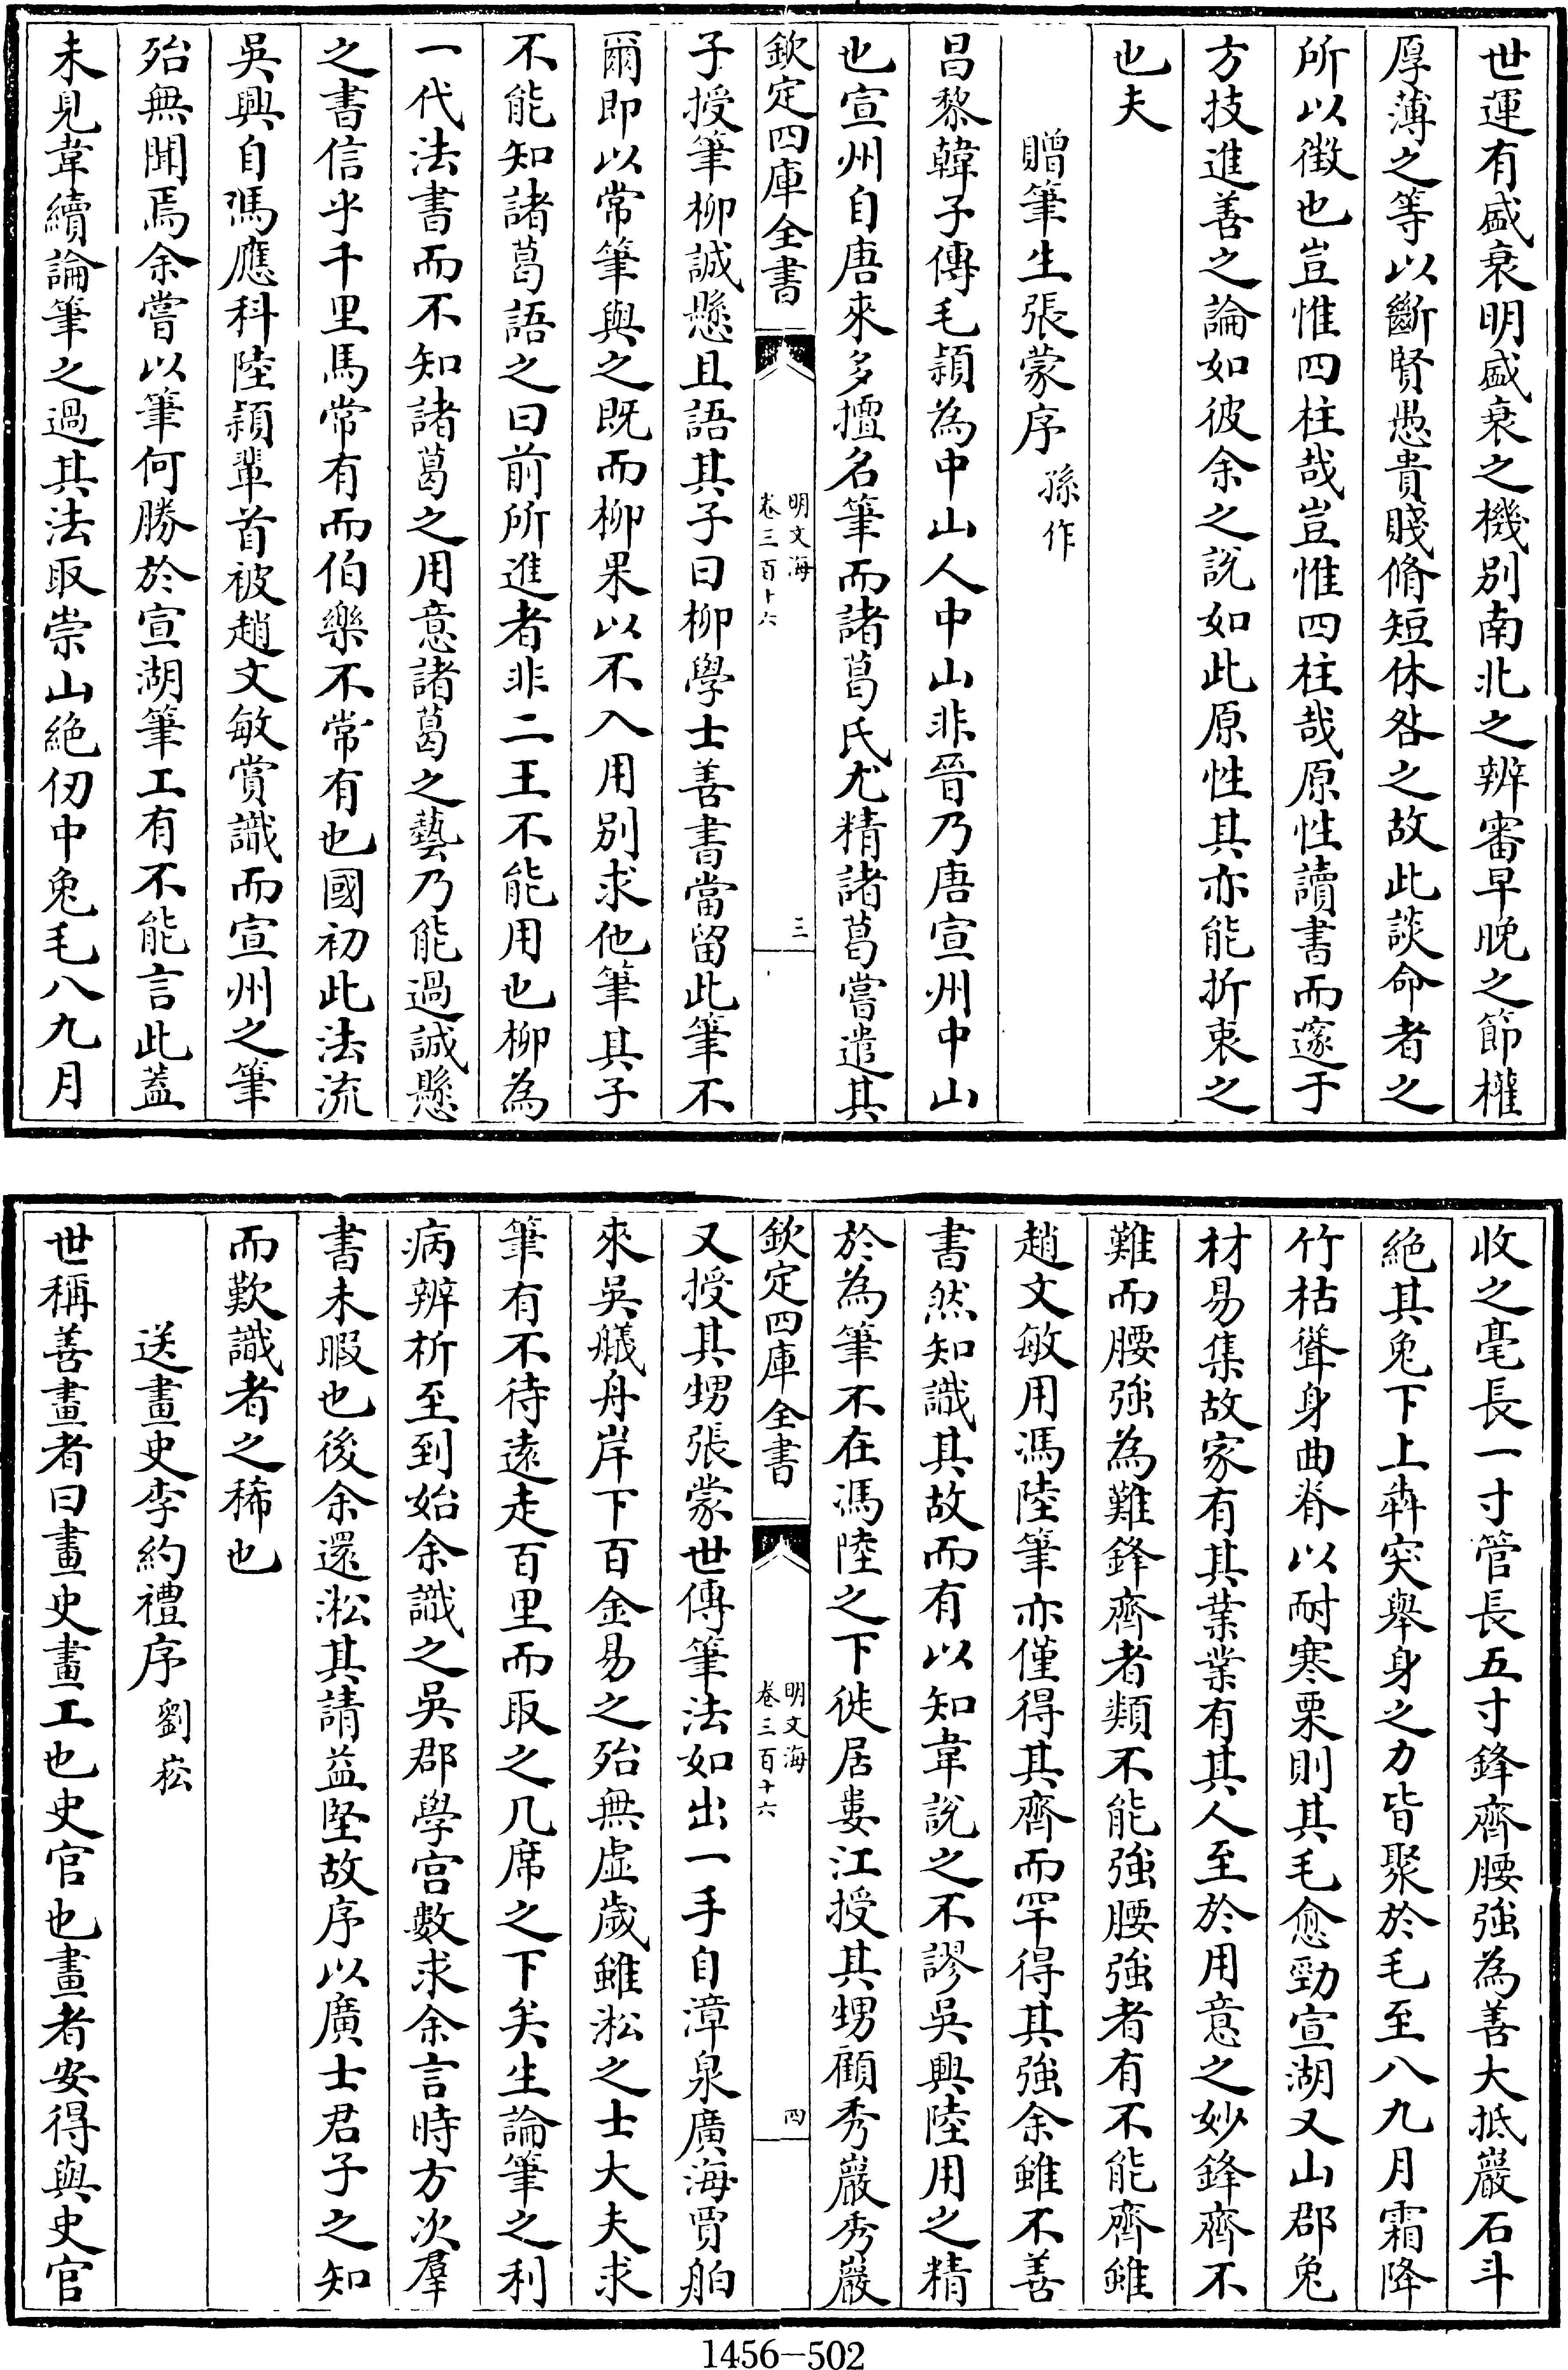 世運有盛衰明盛衰之機别南北之辨審早晚之節權
厚薄之等以斷賢愚貴賤脩短休咎之故此談命者之
所以徵也豈惟四柱哉豈惟四柱哉原性讀書而邃于
方技進善之論如彼余之說如此原性其亦能折衷之
也夫
贈筆生張蒙序 孫作
昌黎韓子傳毛頴為中山人中山非晉乃唐宣州中山
也宣州自唐來多擅名筆而諸葛氏尤精諸葛嘗遣其
欽定四庫全書 明文海 卷三百十六 三
子授筆柳誠懸且語其子曰柳學士善書當留此筆不
爾即以常筆與之既而柳果以不入用别求他筆其子
不能知諸葛語之曰前所進者非二王不能用也柳為
一代法書而不知諸葛之用意諸葛之藝乃能過誠懸
之書信乎千里馬常有而伯樂不常有也國初此法流
吳興自馮應科陸頴輩首被趙文敏賞識而宣州之筆
殆無聞焉余嘗以筆何勝於宣湖筆工有不能言此蓋
未見韋續論筆之過其法取崇山絶仞中兔毛八九月
收之毫長一寸管長五寸鋒齊腰強為善大抵巖石斗
絶其兔下上犇突舉身之力皆聚於毛至八九月霜降
竹枯聳身曲脊以耐寒栗則其毛愈勁宣湖又山郡兔
材易集故家有其業業有其人至於用意之妙鋒齊不
難而腰強為難鋒齊者類不能強腰強者有不能齊雖
趙文敏用馮陸筆亦僅得其齊而罕得其強余雖不善
書然知識其故而有以知韋說之不謬吳興陸用之精
於為筆不在馮陸之下徙居婁江授其甥顧秀巖秀巖
欽定四庫全書 明文海 卷三百十六 四
又授其甥張蒙世傳筆法如出一手自漳泉廣海賈舶
來吳艤舟岸下百金易之殆無虛歲雖淞之士大夫求
筆有不待遠走百里而取之几席之下矣生論筆之利
病辨析至到始余識之吳郡學宫數求余言時方次羣
書未暇也後余還淞其請益堅故序以廣士君子之知
而歎識者之稀也
送畫史李約禮序 劉崧
世稱善畫者曰畫史畫工也史官也畫者安得與史官
1456-502